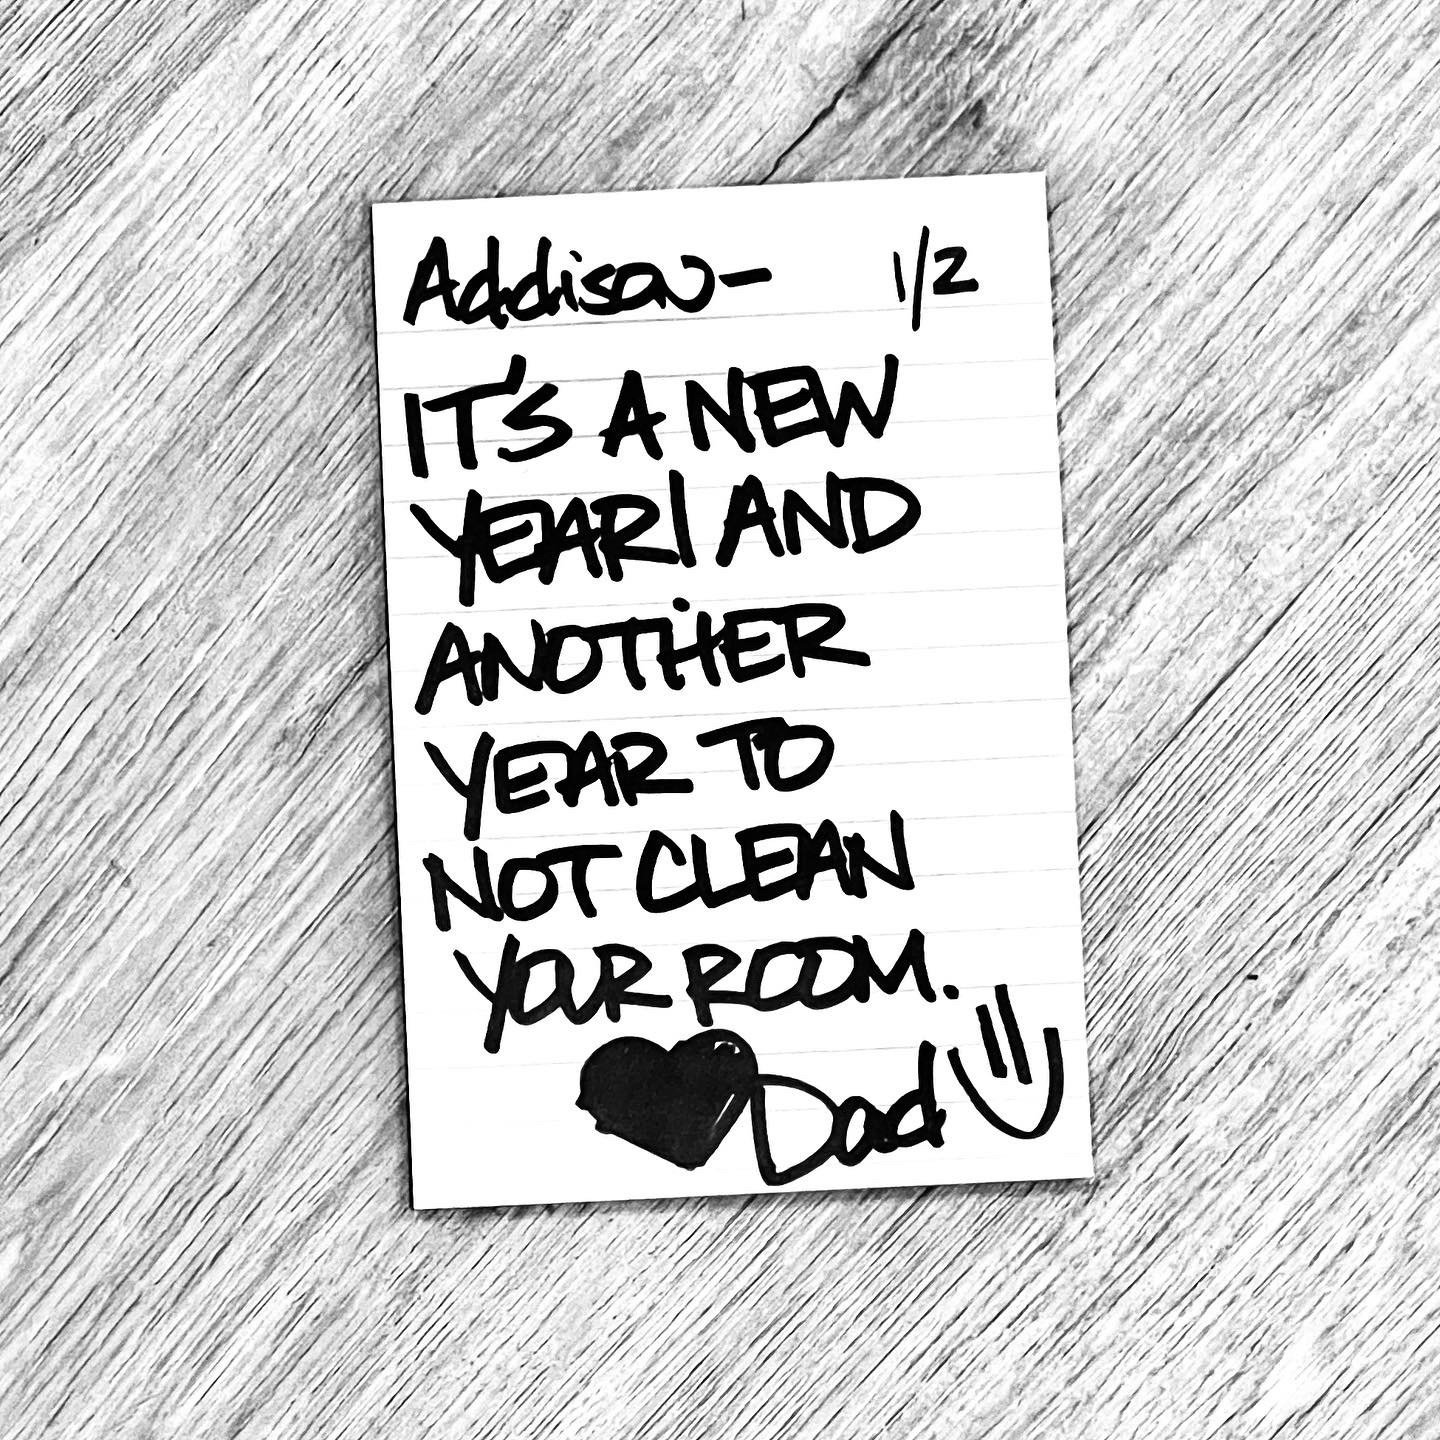 Addison- 1/2
IT'S A NEW
YEAR! AND
ANOTHER
YEAR TO
NOT CLEAN
YOUR ROOM.
Dad